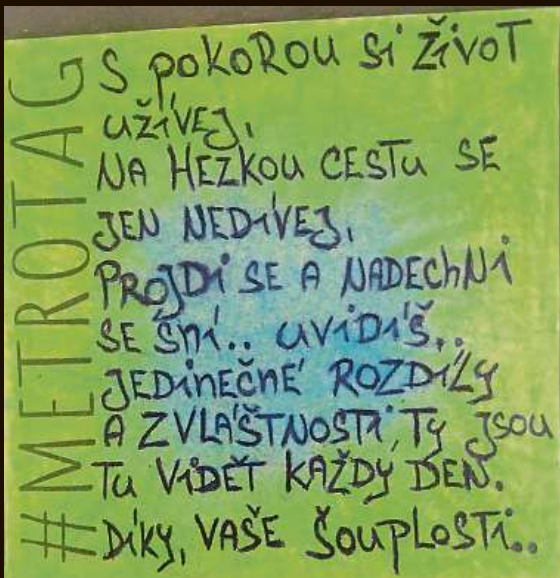 #METROTAG
S POKOROU Si ŽiVOT
UŽÍVEJ,
NA HEZKOU CESTU SE
JEN NEDÍVEJ,
PROJDi SE A NADEChNi
SE ŠNÍ.. UViDíŠ..
JEDiNEČNÉ ROZDÍLY
A ZVLÁŠTNOSTi, TY JSOU
TU ViDĚT KAŽDÝ DEN.
DÍKY, VAŠE ŠOUPLOSTi..